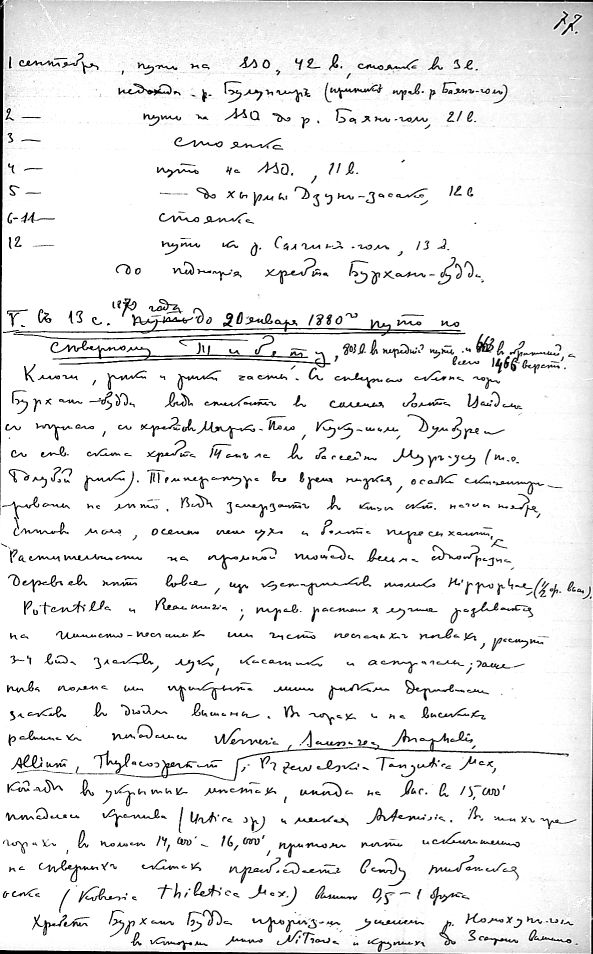 77.
1 сентября, путь на SSO, 42 в., стоянка в 3 в.
недоходя р. Булунгиръ (притокъ прав. р Баянъ-гол)
2 — путь на SSO до р. Баянъ-гол, 21 в.
3 — стоянка
4 — путь на SSO., 11 в.
5 — — до хырмы Дзунъ-засакъ, 12 в
6-11 — стоянка
12 — путь к р. -гол, 13 в.
до подножия хребта Бурханъ-Будда.
Съ 13 с. 1879 года путь до 20 января 1880 г путь по
северному Тибету, 803 в. в передний путь и 663 в обратный, а
всего 1466 верст.
Ключи, реки и речки часты. Съ северного склона горы
Бурхан-Будда воды стекают в соленые болота Цайдама
с южного, с хребтов Марко-Поло, Куку-шили, Думбуре и
с сев. склона хребта Танъ-ла в бассейн Муръ-усу (т.е.
Голубой реки). Температура все время низкая, осадки
на лето. Воды замерзают в конце окт. начале ноября,
снегов мало, осенью очень сухо и болота пересыхают.
Растительность на огромной площади весьма однообразна,
Деревьев нет вовсе, из кустарников только Hippophae, (1/2 ф. выс.),
Potentilla и Reaumuria; трав. растения лучше развиваются
на глинисто-песчаных или чисто песчаных почвах, растут
3-4 вида злаков, лук, касатик и астрагалы; чаще
почва голена или прикрыта лишь редкими дерновинами
злаков в дюйм вышины. В горах и на высоких
равнинах попадались Werneria, Saussurea, Anaphalis,
Allium, Thylacospermum; Przewalskia Tangutica Max,
Кой где в укрытых местах, иногда на выс. в 15,000'
попадалась крапива (Urtica sp) и мелкая Artemisia. В тех же
горах, в поясе 14,000' - 16,000', притом почти исключительно
на северных склонах преобладает всюду тибетская
осока (Kobresia thibetica Max.) вышины 0,5 – 1 фута
Хребет Бурхан Будда прорезан ущельем р. Номохунъ-гол
в котором много Nitraria и крупных до 3 сажен вышины.